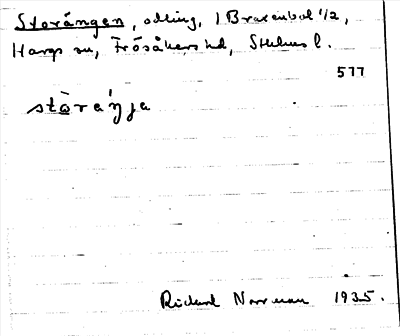 Storängen, odling, 1 Braxenbol 1/2,
Hargs sn, Frösåkers hd, Sthlms l.
577
stòraŋ́ja
Rickard Norrman 1935.